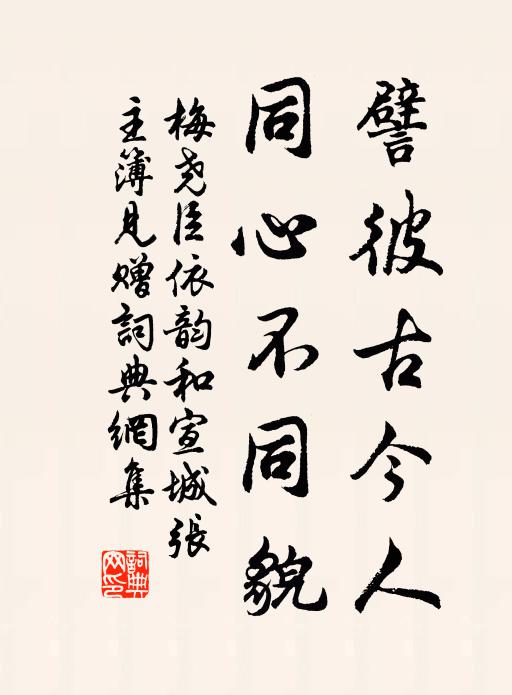 譬彼古今人
同心不同貌
梅尧臣依韵和宣城張
主簿見赠詞典網集
詞典
网印